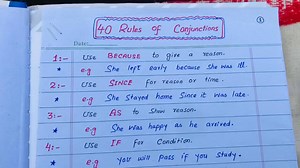 40 Rules of Conjunctions
1
Date:
1:- Use BECAUSE to give a reason.
* e.g She left early because she was ill.
2:- Use SINCE for reason or time.
* e.g She stayed home since it was late.
3:- Use AS to show reason.
* e.g She was happy as he arrived.
4:- Use IF for Condition.
* e.g you will pass if you study.